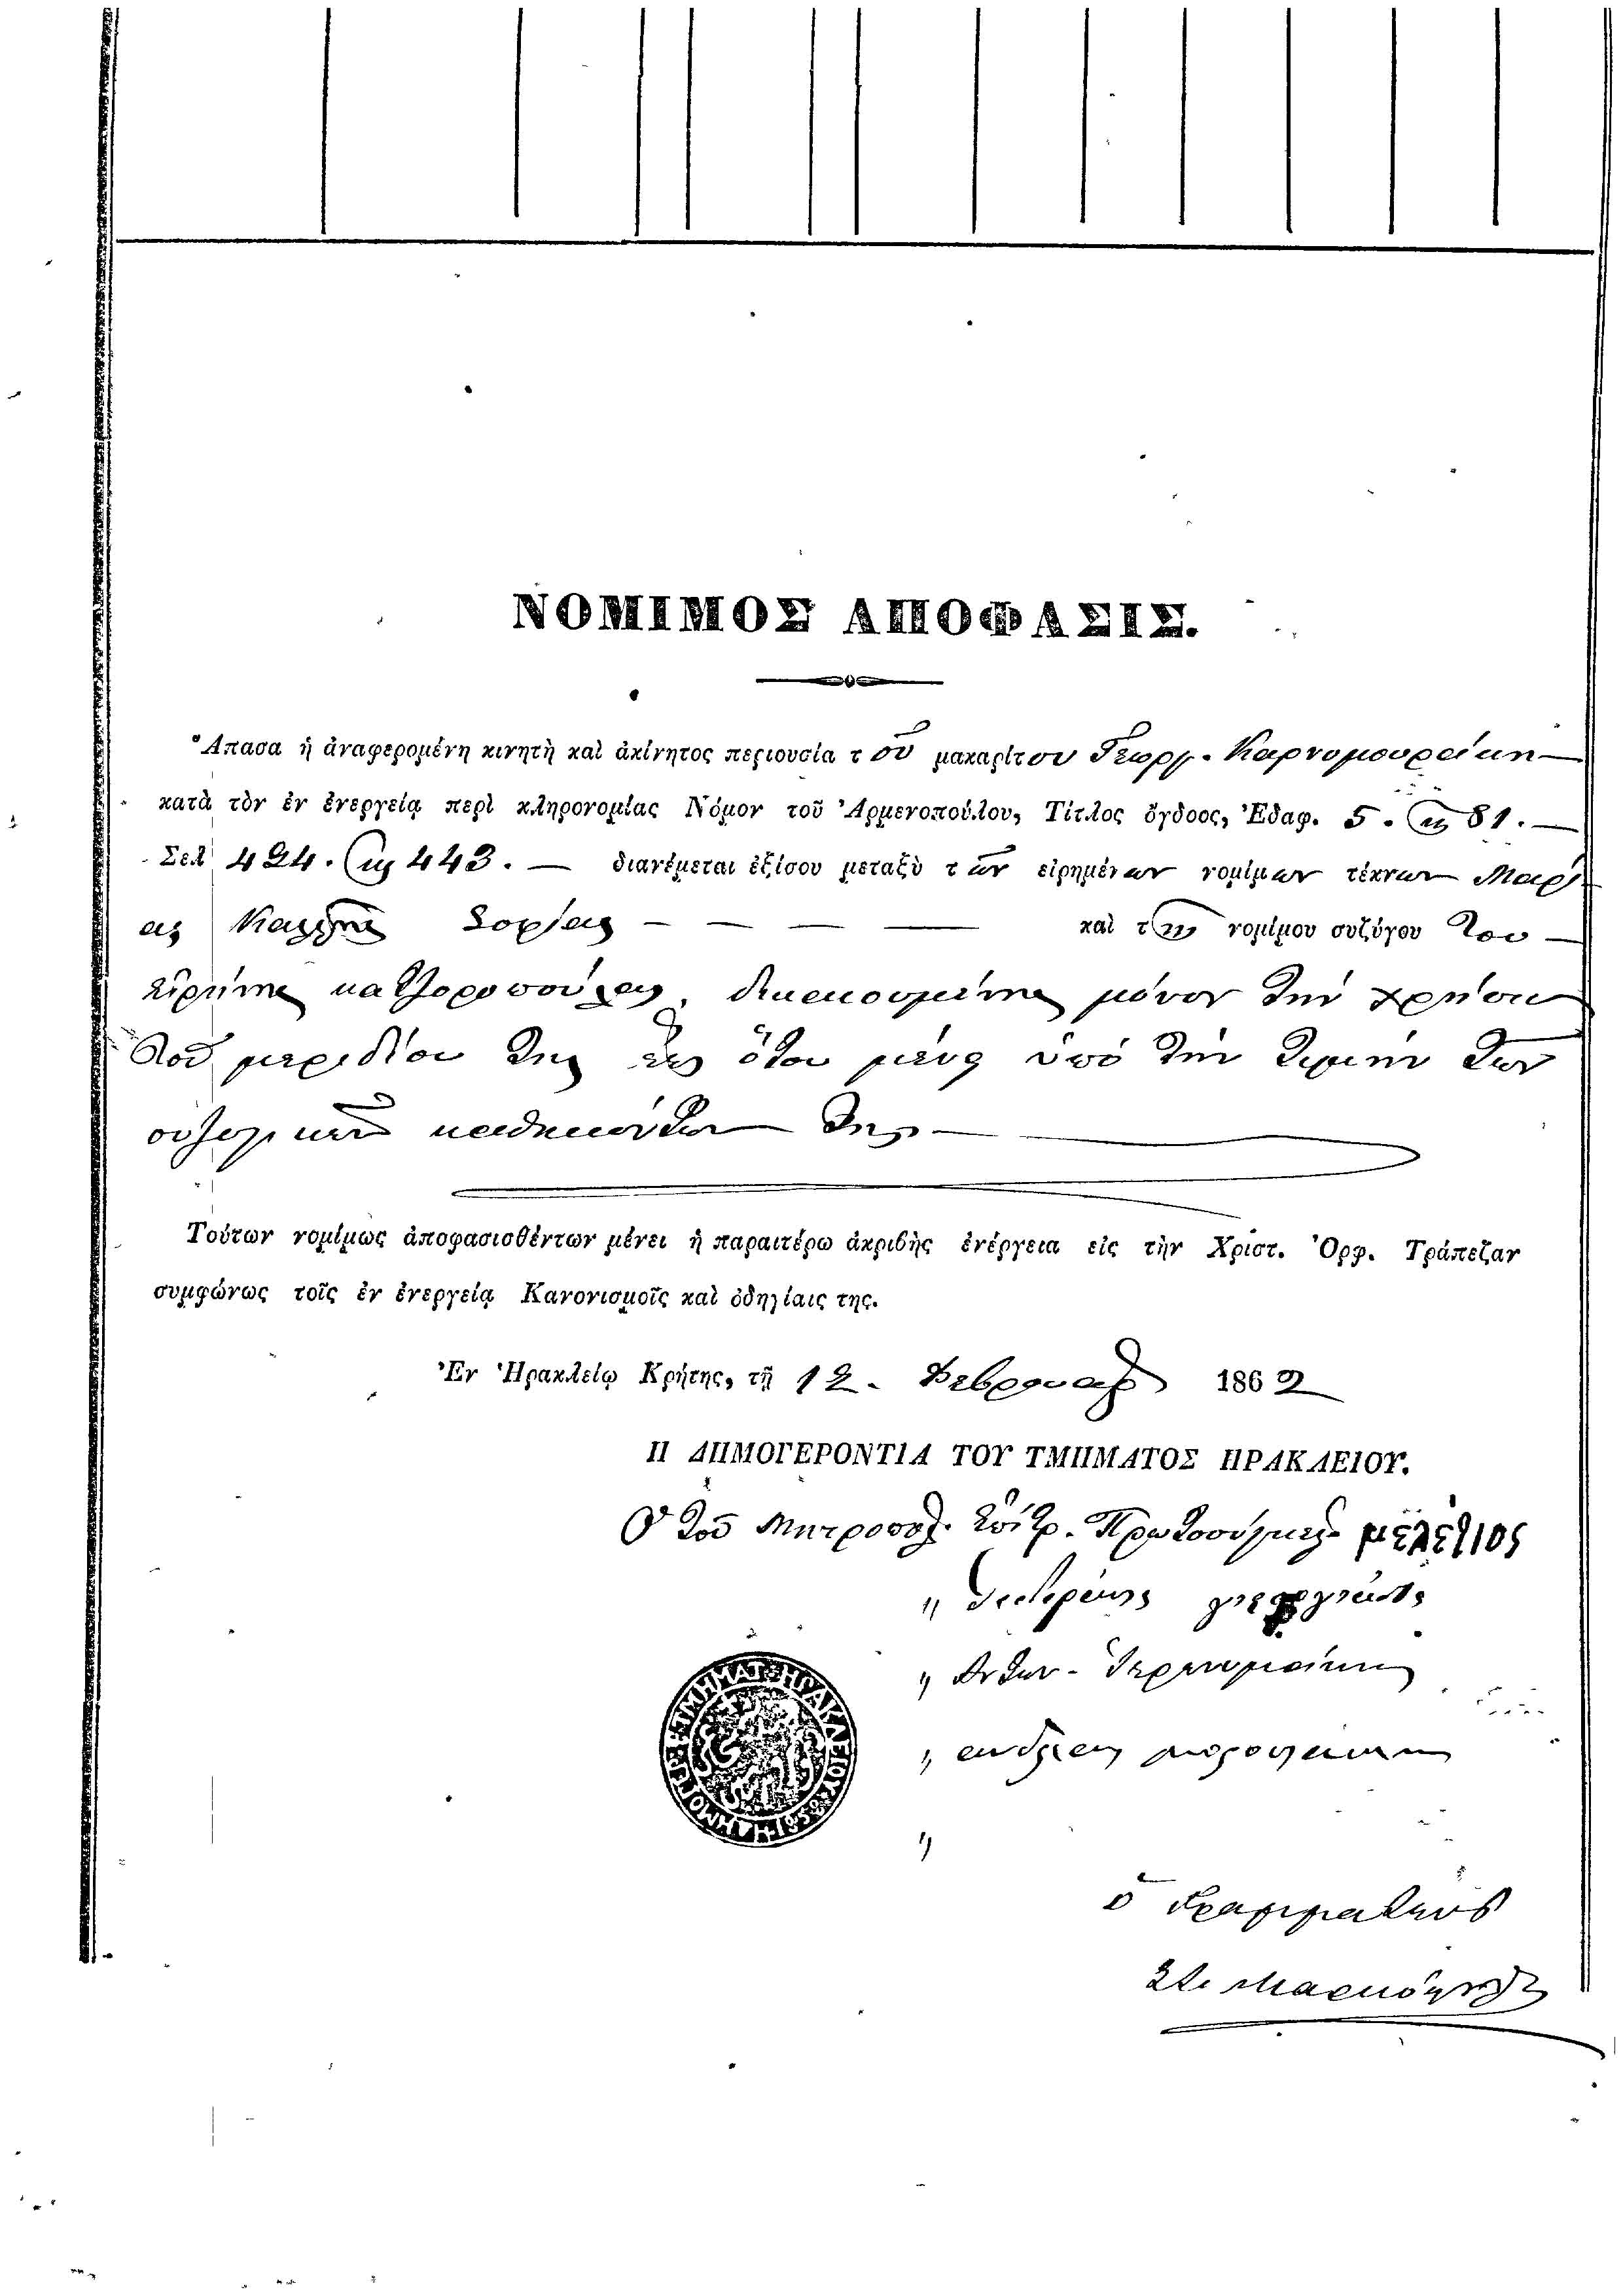 ΝΟΜΙΜΟΣ ΑΠΟΦΑΣΙΣ.
Ἅπασα ἡ ἀναφερομένη κινητὴ καὶ ἀκίνητος περιουσία τοῦ μακαρίτου Γεωργ. Καρνομουράκη
κατὰ τὸν ἐν ἐνεργείᾳ περὶ κληρονομίας Νόμον τοῦ Ἀρμενοπούλου, Τίτλος ὄγδοος, Ἐδαφ. 5. καὶ 81.
Σελ 424. καὶ 443. διανέμεται ἐξίσου μεταξὺ τῶν εἰρημένων νομίμων τέκνων Μαρί
ας Καλλῆς Σοφίας καὶ τῆς νομίμου συζύγου του
Εἰρήνης, δικαιουμένης μόνον τὴν χρῆσιν
τοῦ μεριδίου της ἐς ὅτου μένῃ ὑπὸ τὴν τιμὴν των
συζυγικῶν καθηκόντων της
Τούτων νομίμως ἀποφασισθέντων μένει ἡ παραιτέρω ἀκριβὴς ἐνέργεια εἰς τὴν Χριστ. Ὀρφ. Τράπεζαν
συμφώνως τοῖς ἐν ἐνεργείᾳ Κανονισμοῖς καὶ ὁδηγίαις της.
Ἐν Ἡρακλείῳ Κρήτης, τῇ 12. Φεβρουαρ 1862
Η ΔΗΜΟΓΕΡΟΝΤΙΑ ΤΟΥ ΤΜΗΜΑΤΟΣ ΗΡΑΚΛΕΙΟΥ.
Ὁ τοῦ Μητροπολ. Ἐπίτρ. Πρωτοσύγκελ. μελέτιος
"
" Ἀντων.
" ανδρεας
"
ΔΗΜΟΓΕΡ: ΤΜΗΜΑΤ: ΗΡΑΚΛΕΙΟΥ: 1858
ὁ Γραμματεὺς
Στ.